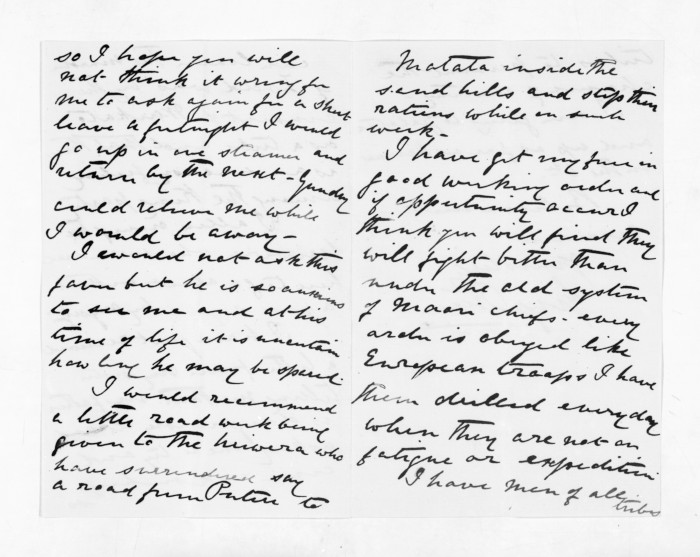 so I hope you will
not think it wrong for
me to ask again for a short
leave a fortnight I would
go up in one steamer and
return by the next - Gundry
could relieve me while
I would be away -
I would not ask this
favor but he is so anxious
to see me and at his
time of life it is uncertain
how long he may be spared.
I would recommend
a little road work being
given to the who
have surrendered say
a road from to
Matata inside the
sand hills and stop their
rations while on such
work -
I have got my force in
good working order and
if opportunity occurs I
think you will find they
will fight better than
under the old system
of Maori chiefs - every
order is obeyed like
European troops I have
them drilled everyday
when they are not on
fatigue or expedition
I have men of all
tribes